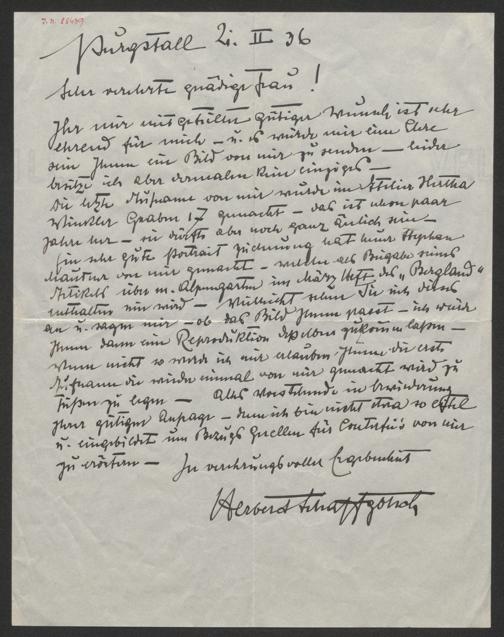 J.N. 88489
Purgstall 2. II 36
Sehr verehrte gnädige Frau!
Ihr mir mitgeteilter gütiger Wunsch ist sehr
ehrend für mich – u. es würde mir eine Ehre
sein Ihnen ein Bild von mir zu senden – leider
besitze ich aber dermalen kein einziges –
Die letzte Aufname von mir wurde im Atelier Hertha
Winkler Graben 17 gemacht – das ist schon paar
Jahre her – sie dürfte aber noch ganz änlich sein –
Ein sehr gute Portrait Zeichnung hat mir Stephan
Mautner von mir gemacht – welche als Beigabe eines
Artikels über m. Alpengarten im März Heft des „Bergland“
enthalten sein wird – Vielleicht sehen Sie sich dieses
an u. sagen mir – ob das Bild Ihnen passt – ich würde
Ihnen dann eine Reproduktion desselben zukommen lassen –
Wenn nicht so werde ich mir erlauben Ihnen die erste
Aufname die wieder einmal von mir gemacht wird zu
Füßen zu legen – Alles Vorstehende in Erwiderung
Ihrer gütigen Anfrage – denn ich bin nicht etwa so eitel
u. eingebildet um Bezugs Quellen für Conterfei's von mir
zu erörtern – In verehrungsvoller Ergebenheit
Herbert Schaffgotsch